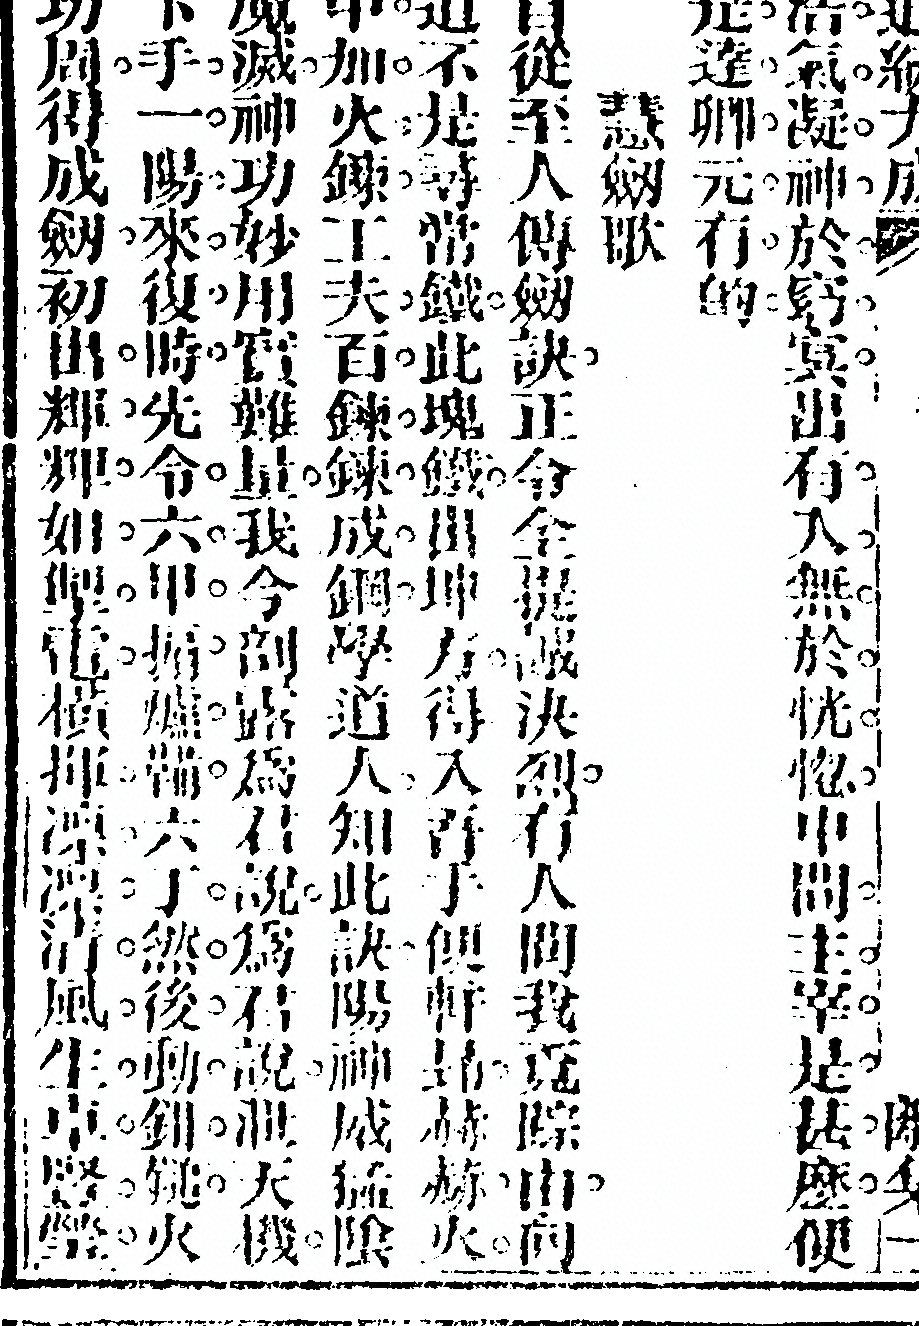 浩氣凝神於窈冥出有入無於恍惚中間主宰是甚麼便
是達卿元有的
慧劍歌
自從至人傳劍訣正令全提誠決烈有人問我覓蹤由向
道不是尋常鐵此塊鐵出坤方得入吾手便軒昂赫赫火
中加火鍊工夫百鍊鍊成鋼學道人知此訣陽神威猛陰
魔滅神功妙用實難量我今剖露爲君說爲君說泄天機
下手一陽來復時先令六甲搧爐鞴六丁然後動鉗鎚火
功周得成劍初出輝輝如掣電橫揮凛凛清風生卓竪瑩